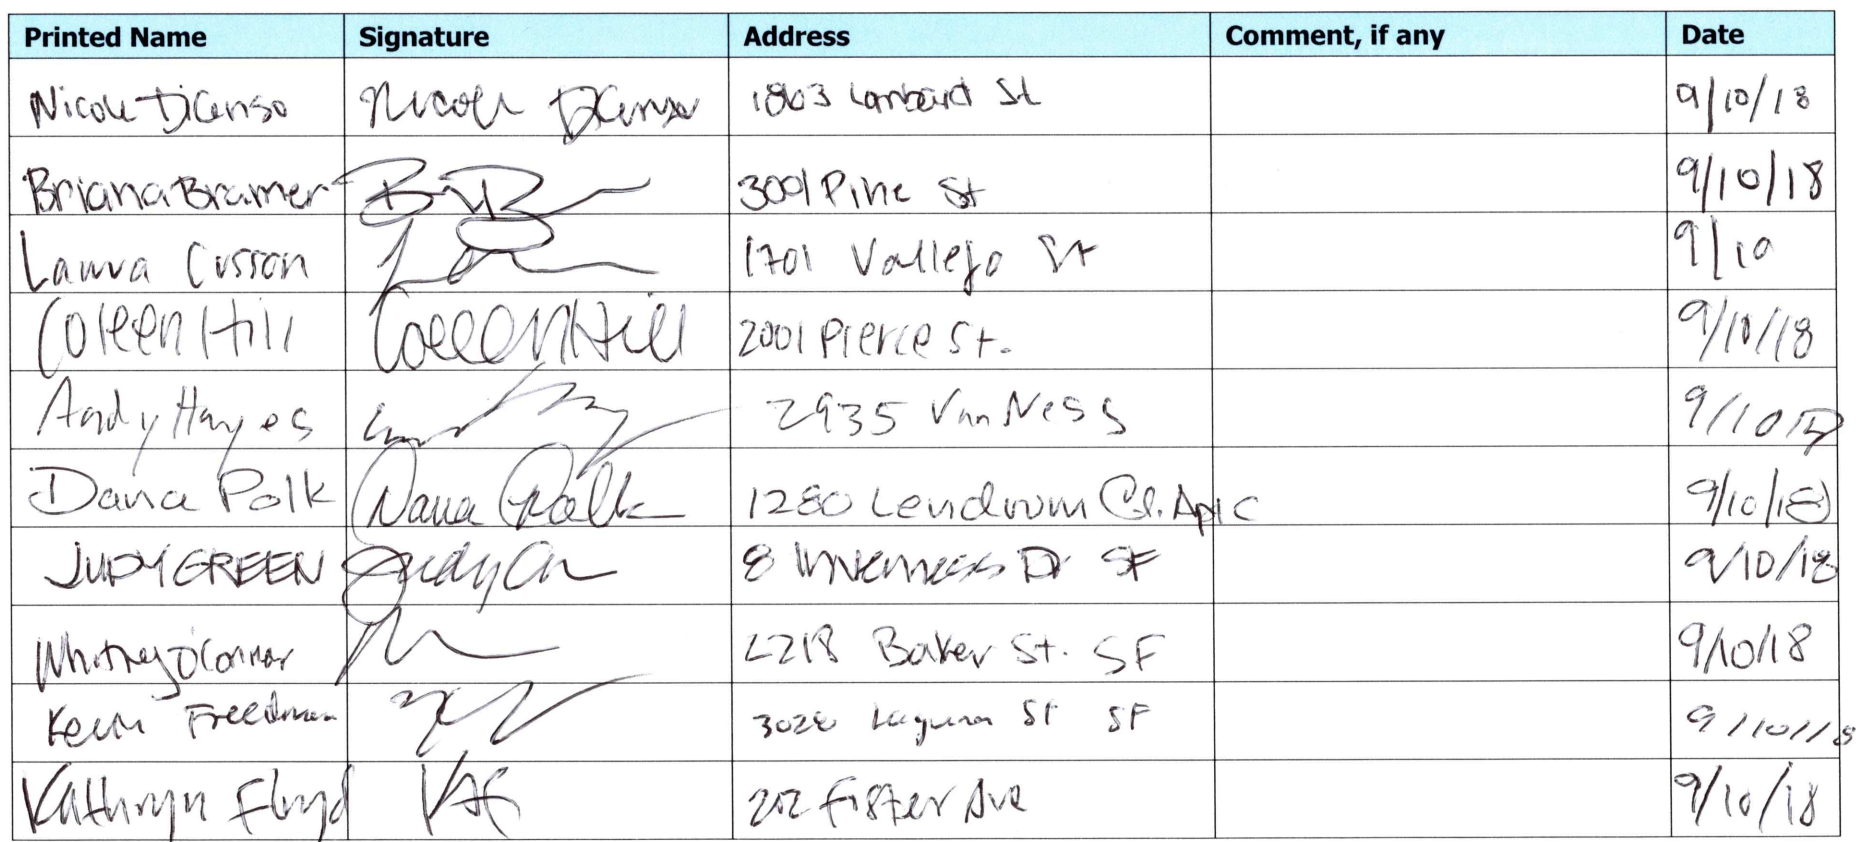 Printed Name Signature Address Comment, if any Date
Nicole DiCenso Nicole DiCenso 1863 Lombard St 9/10/18
Briana Bramer 3001 Pine St 9/10/18
Laura Cusson 1701 Vallejo St 9/10
Coleen Hill Coleen Hill 2001 Pierce St. 9/10/18
Andy Hayes 2935 Van Ness 9/10
Dana Polk Dana Polk 1280 Lendrum Ct. Apt C 9/10/18
JUDY GREEN Judy 8 Inverness Dr SF 9/10/18
Whitney O'Connor 2218 Baker St. SF 9/10/18
Kevin Freedman Laguna St SF 9/10/18
Kathryn Floyd KAF 202 Ave 9/10/18